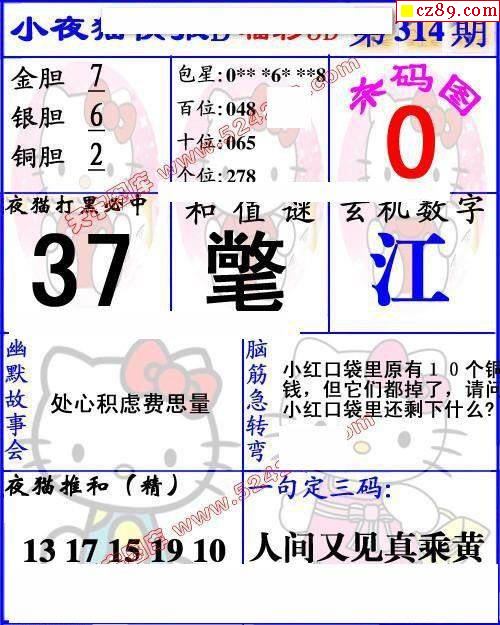 cz89.com
小夜猫 福彩3D 第314期
金胆 7
银胆 6
铜胆 2
包星:0** *6* **8
百位:048
十位:065
个位:278
杀码图
0
夜猫打黑必中
37
和值谜
氅
玄机数字
江
幽默故事会
处心积虑费思量
脑筋急转弯
小红口袋里原有10个铜
钱，但它们都掉了，请问
小红口袋里还剩下什么?
夜猫推和（精）
13 17 15 19 10
一句定三码:
人间又见真乘黄